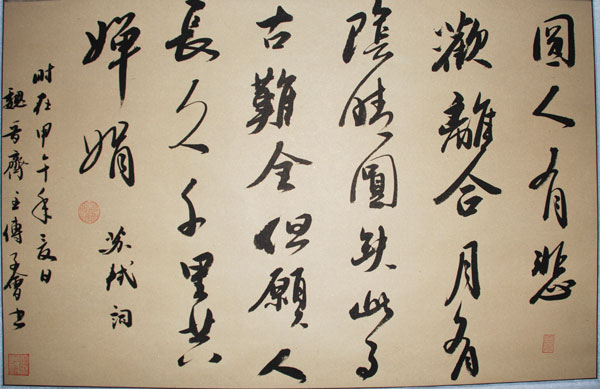 圓人有悲
歡離合月有
陰晴圓缺此事
古難全但願人
長久千里共
嬋娟
苏軾詞
时在甲午年夏日
魏晋齋主傅子會书